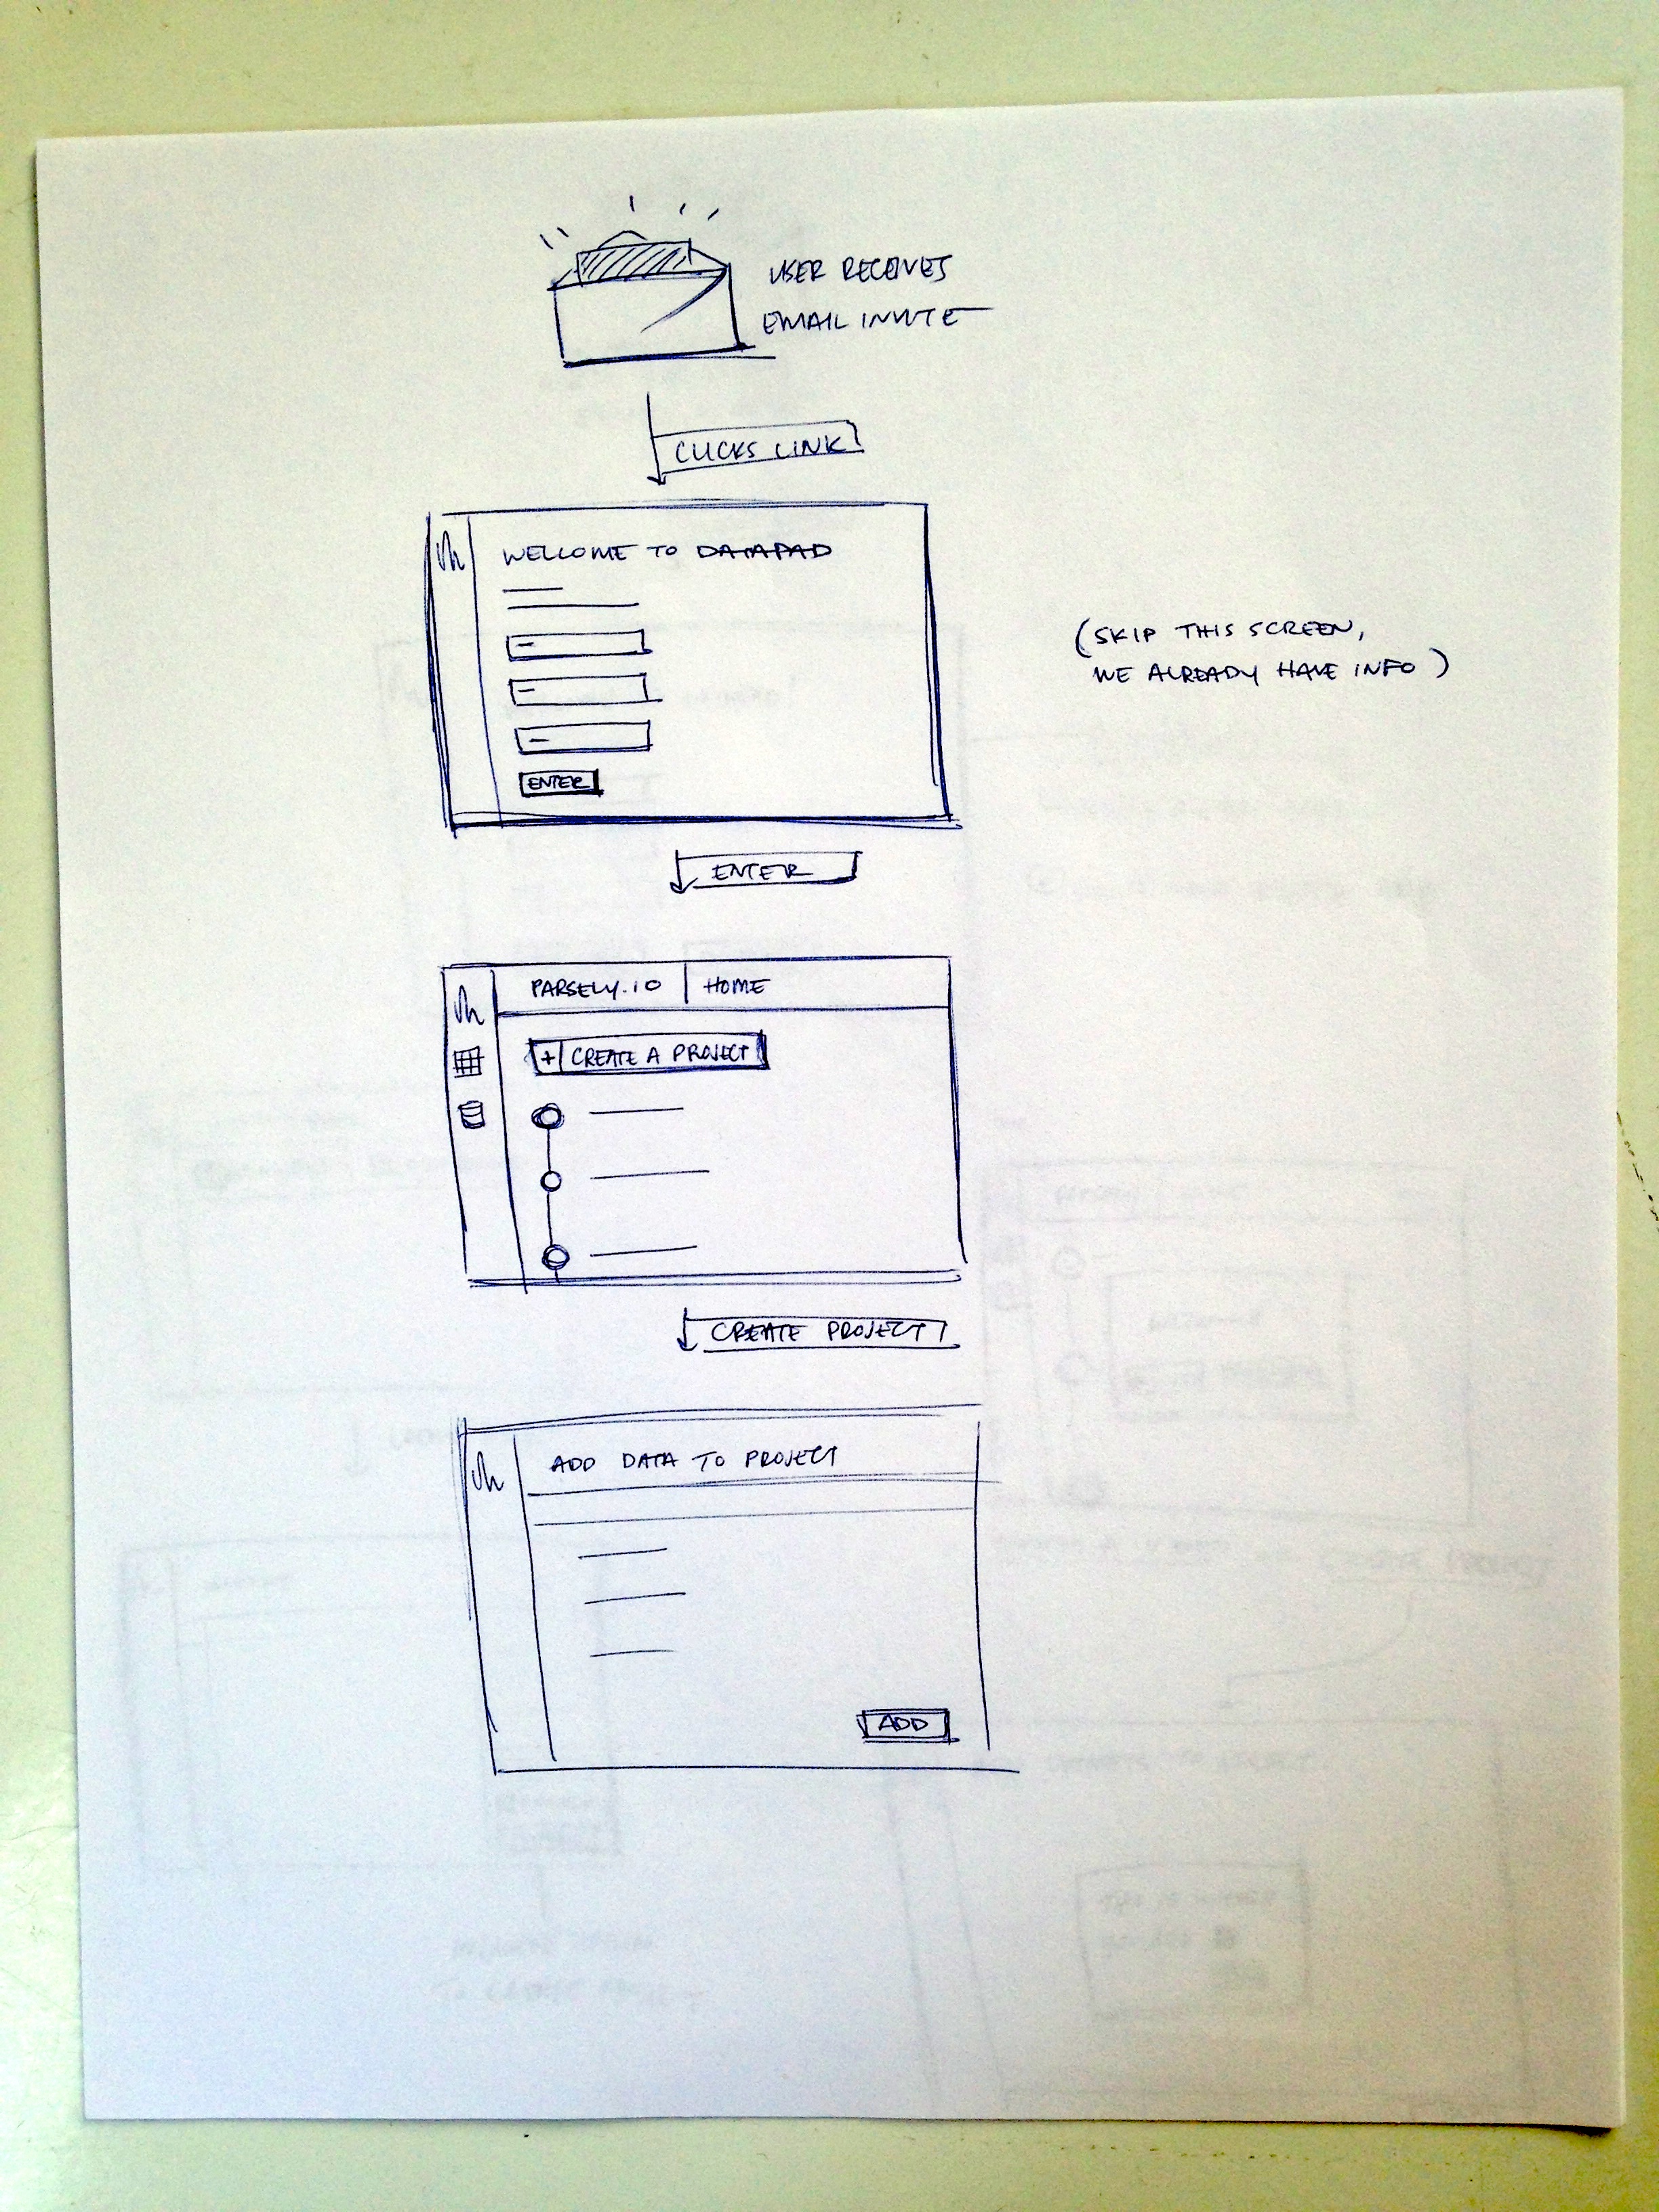 USER RECEIVES
EMAIL INVITE
CLICKS LINK
WELCOME TO DATAPAD
(SKIP THIS SCREEN,
WE ALREADY HAVE INFO)
ENTER
ENTER
PARSELY.IO HOME
+ CREATE A PROJECT
CREATE PROJECT
ADD DATA TO PROJECT
ADD